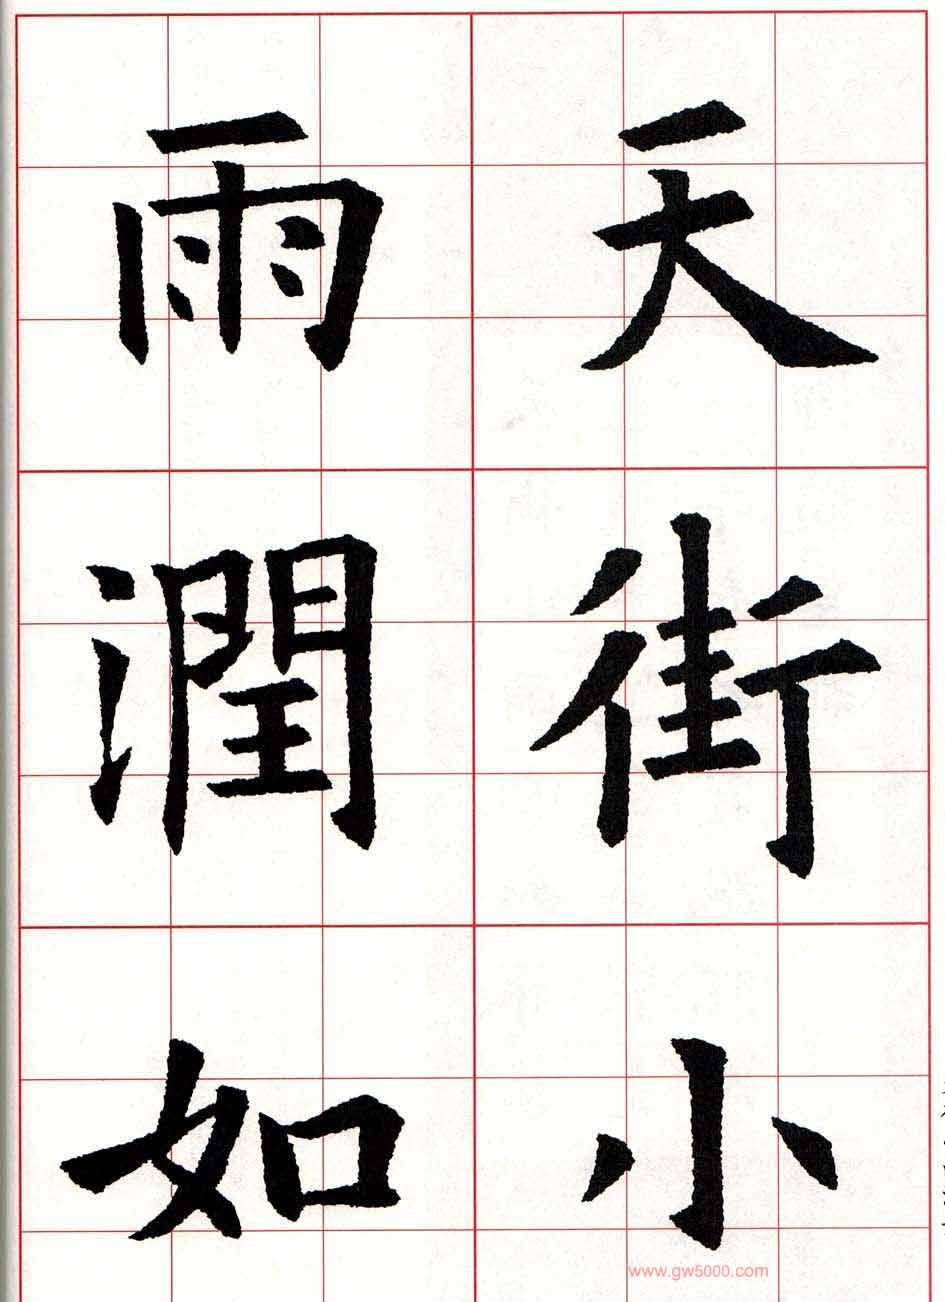 天街小
雨潤如
www.gw5000.com